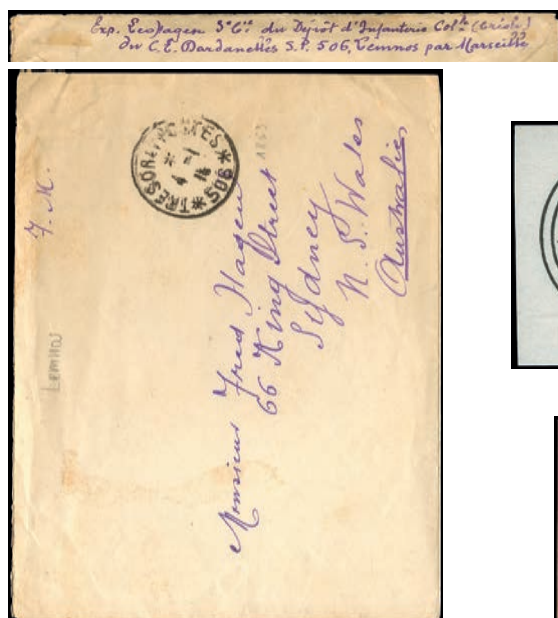 Exp. Leo Hagen 3e Cie du Dépôt d'Infanterie Colle (Créole)
du C.E. Dardanelles S.P. 506, Lemnos par Marseille
F. M.
Lemnos
TRESOR ET POSTES * 506 *
Monsieur Fred Hagen
66 King Street
Sydney
N. S. Wales
Australie